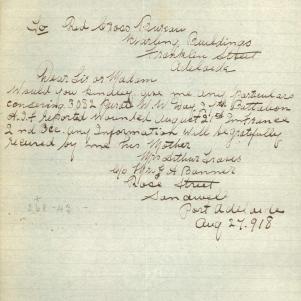 To Red Cross Bureau
Darling Buildings
Franklin Street
Adelaide
Dear Sir or Madam
Would you kindley give me any particulars
consering 3032 W W 27th Battalion
A.I.F reported Wounded August 21st in France
2nd Occ. any Information will be gratefully
recieved by me his Mother
Mrs Arthur
c/o Mrs G A Banner
Rose Street
Sandwel
Port Adelaide
Aug 27. 918